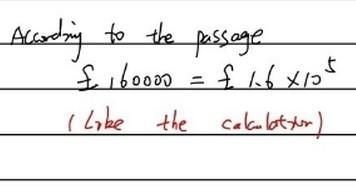 According to the passage
£ 160000 = £ 1.6 × 10⁵
( Like the calculator)